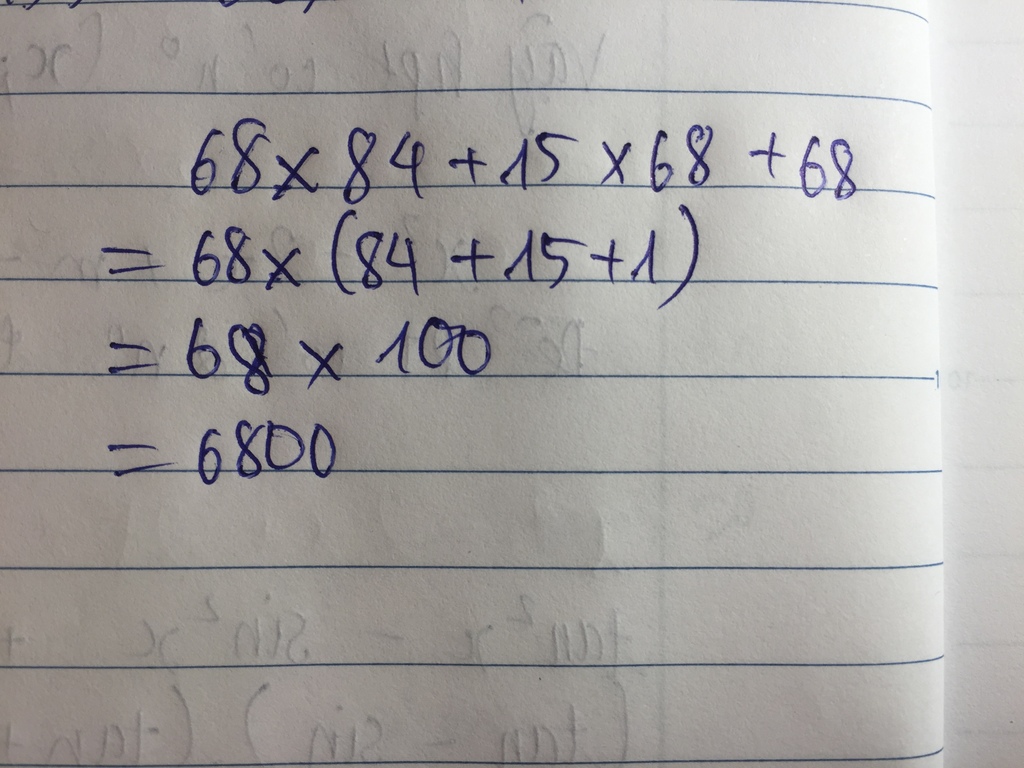 68 × 84 + 15 × 68 + 68
= 68 × (84 + 15 + 1)
= 68 × 100
= 6800